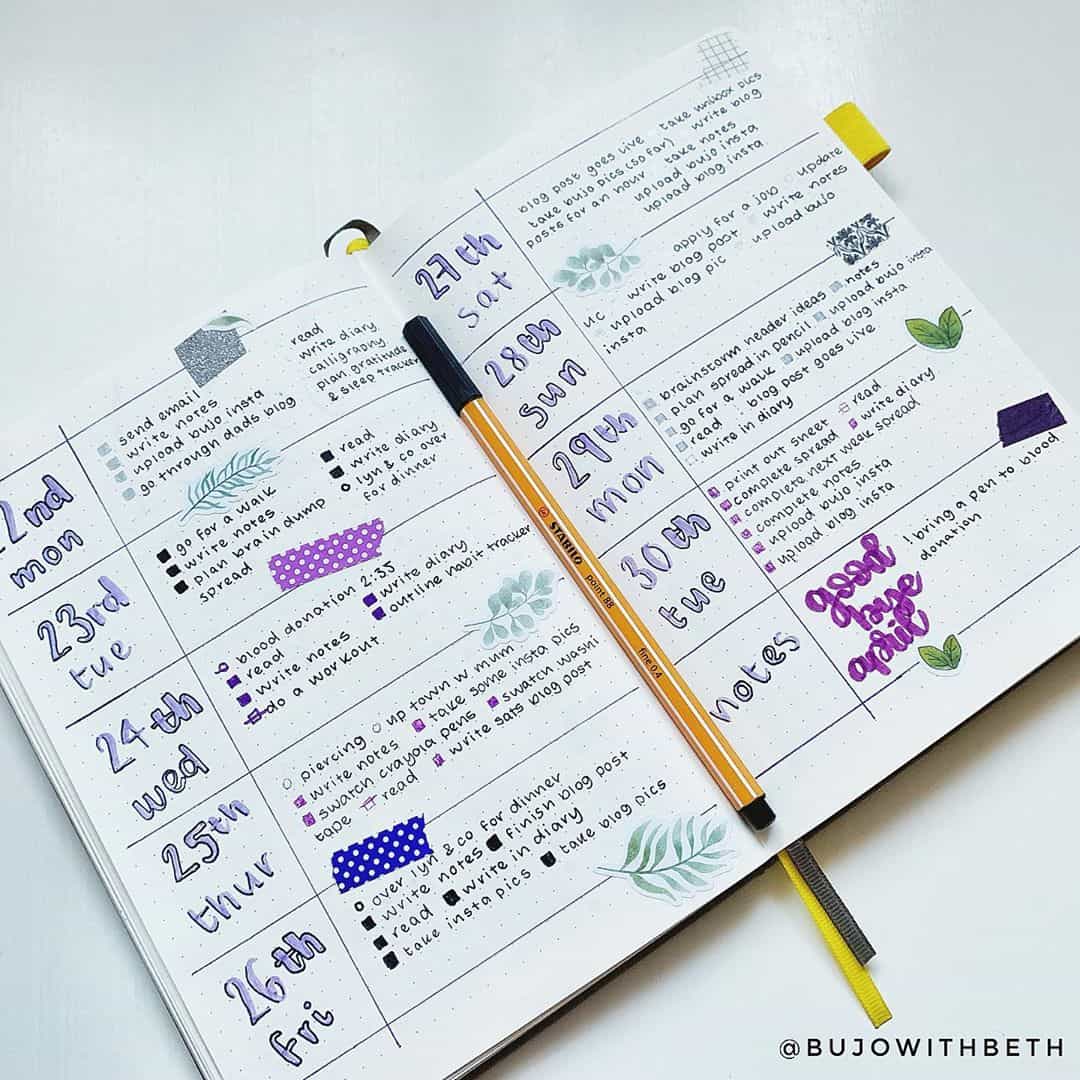 2nd
mon
send email
write notes
upload bujo insta
go through dads blog
read
write diary
calligraphy
plan gratitude
& sleep tracker
23rd
tue
go for a walk
write notes
plan brain dump
spread
read
write diary
lyn & co over
for dinner
24th
wed
blood donation 2:35
read
write notes
do a workout
write diary
outline habit tracker
25th
thur
piercing up town w mum
write notes take some insta pics
swatch crayola pens swatch washi
tape read write gats blog post
26th
fri
over lyn & co for dinner
write notes finish blog post
read write in diary
take insta pics take blog pics
27th
sat
blog post goes live take unibox pics
take bujo pics (so far) write blog
posts for an hour take notes
upload bujo insta
upload blog insta
28th
sun
apply for a job update
uc write blog post write notes
upload blog pic upload bujo
insta
29th
mon
brainstorm header ideas notes
plan spread in pencil upload bujo insta
go for a walk upload blog insta
read blog post goes live
write in diary
30th
tue
print out sheet read
complete spread write diary
complete next weak spread
complete notes
upload bujo insta
upload blog insta
notes
good
bye
april
! bring a pen to blood
donation
STABILO point 88 fine 0.4
@BUJOWITHBETH